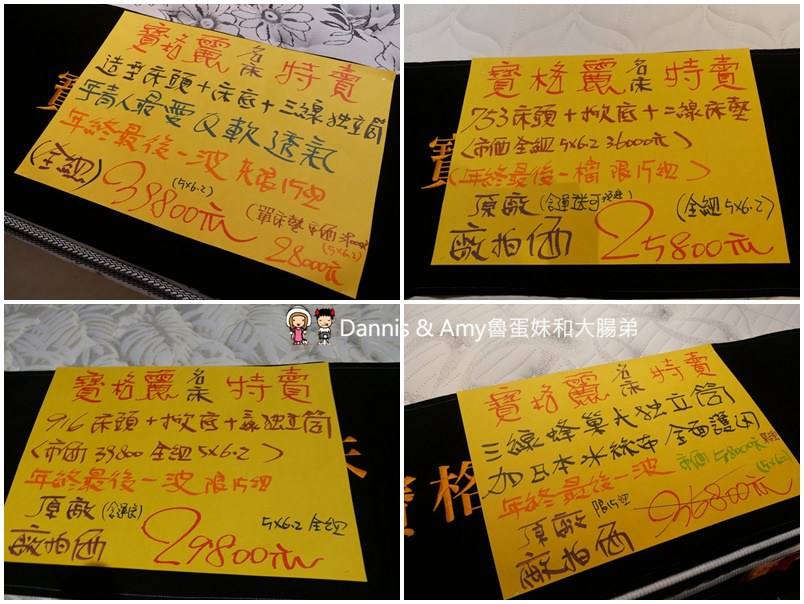 寶格麗名床特賣
造型床頭+床底+三線独立筒
年青人最愛Q軟透氣
年終最後一波 只限15組
(全組) 39800元
(5x6.2)
(單床墊市価
(5x6.2)
28000元
寶
寶格麗名床特賣
753床頭+掀底+二線床墊
(市価全組5x6.2 36000元)
(年終最後一檔 限15組)
原廠(含運送可
(全組5x6.2)
廠拍価 25800元
寶
Dannis & Amy魯蛋妹和大腸弟
寶格麗名床特賣
916床頭+掀底+三線独立筒
(市価39800全組5x6.2)
年終最後一波 限15組
原廠(含運送)
5x6.2全組
廠拍価 29800元
床
寶格麗名床特賣
三線蜂巢式独立筒
加日本冰絲布全面護図
年終最後一波 市価58000元
(5x6.2)
原廠 限15組
廠拍価 36800元
寶格